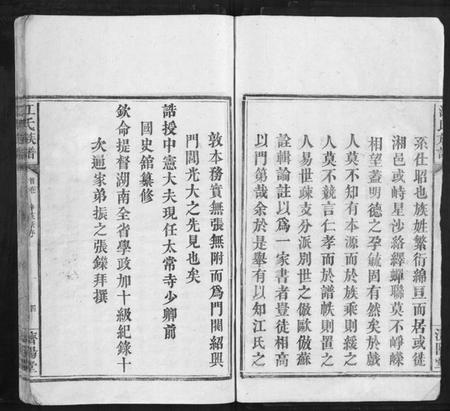 系仕昭也族姓繁衍綿亘而居或徙
湘邑或峙星沙絡繹蟬聯莫不崢嶸
相望蓋明德之孕毓固有然矣於戲
人莫不知有本源而於族乘則緩之
人莫不競言仁孝而於譜帙則置之
人易世疎支分派別世之倣歐倣蘇
詮輯論註以為一家書者豈徒相高
以門第哉余於是舉有以知江氏之
敦本務實無張無附而為門閭紹興
門閭光大之先見也矣
誥授中憲大夫現任太常寺少卿前
國史舘纂修
欽命提督湖南全省學政加十級紀錄十
次通家弟振之張鑅拜撰
江氏族譜
四
濟陽堂